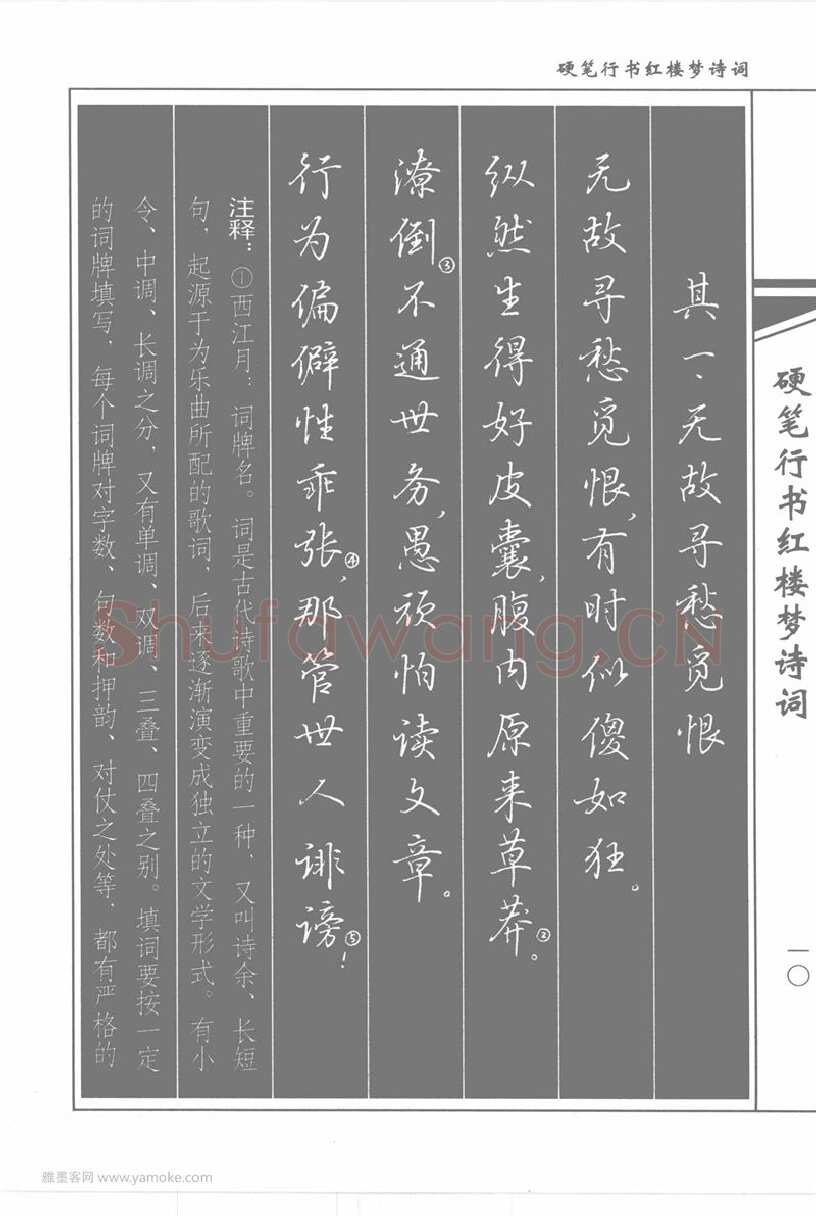 硬笔行书红楼梦诗词
硬笔行书红楼梦诗词
一〇
其一、无故寻愁觅恨
无故寻愁觅恨，有时似傻如狂。
纵然生得好皮囊，腹内原来草莽②。
潦倒③不通世务，愚顽怕读文章。
行为偏僻性乖张④，那管世人诽谤⑤！
注释：①西江月：词牌名。词是古代诗歌中重要的一种，又叫诗余、长短
句，起源于为乐曲所配的歌词，后来逐渐演变成独立的文学形式。有小
令、中调、长调之分，又有单调、双调、三叠、四叠之别。填词要按一定
的词牌填写，每个词牌对字数、句数和押韵、对仗之处等，都有严格的
Shufawang.CN
雅墨客网 www.yamoke.com